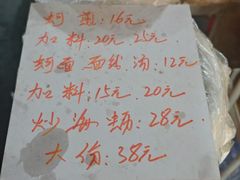 蚵煎:16元
加料:20元 25元
蚵面 面线汤:12元
加料:15元 20元
炒海蛎:28元
大份:38元